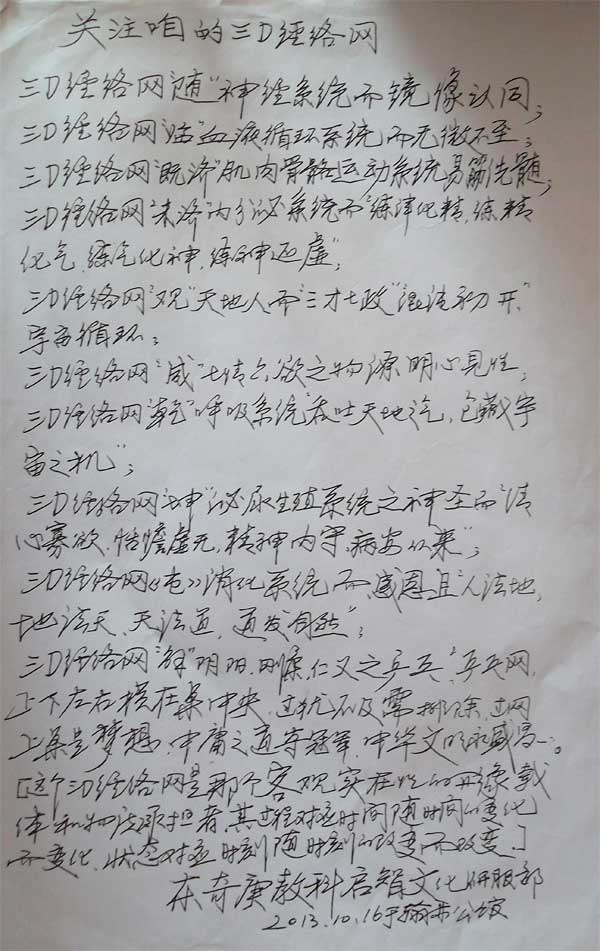 关注咱的三D经络网
三D经络网"随"神经系统而镜像认同；
三D经络网"恒"血液循环系统而无微不至；
三D经络网"既济"肌肉骨骼运动系统易筋洗髓；
三D经络网"未济"内分泌系统而"练津化精，练精
化气，练气化神，练神还虚"；
三D经络网"观"天地人而"三才七政"混沌初开，
宇宙循环；
三D经络网"咸"七情六欲之物源明心见性；
三D经络网"乾"呼吸系统"吞吐天地之气，包藏宇
宙之机"；
三D经络网"坤"泌尿生殖系统之神圣而"清
心寡欲，恬憺虚无，精神内守，病安从来"；
三D经络网 消化系统而感恩且"人法地，
地法天、天法道，道发自然"；
三D经络网"解"阴阳、刚柔、仁义之乒乓，乒乓网，
上下左右横在桌中央，过犹不及需排除，过网
上桌是梦想，中庸之道夺冠军，中华文明永盛昌…。
[这个三D经络网是那个客观实在性的 载
体和 承担者，其过程对应时间随时间的变化
而变化，状态对应时刻随时刻的改变而改变。]
东奇庚教科启智文化研服部
2013.10.16于翰 公馆